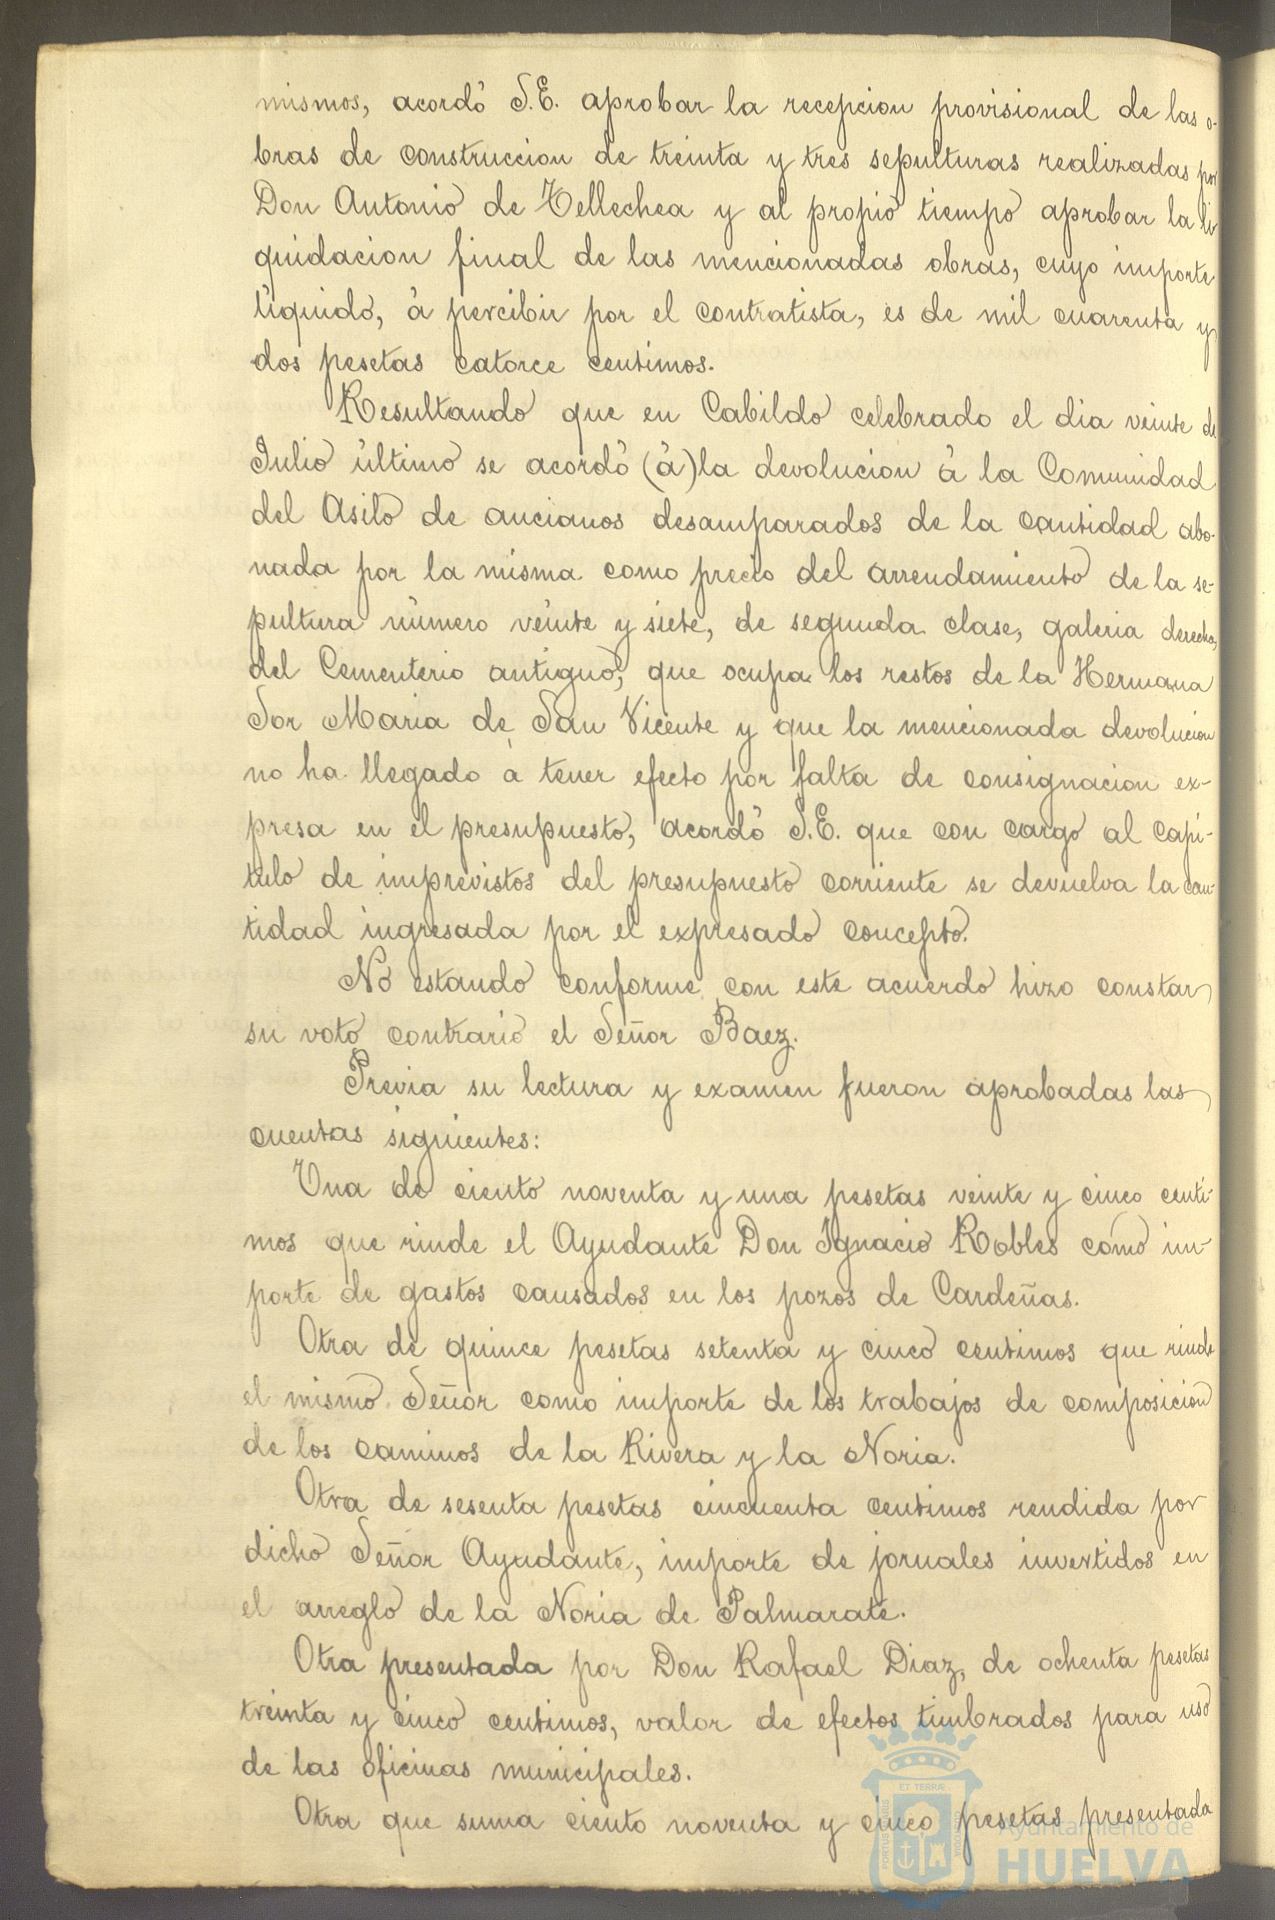 mismos, acordó S.E. aprobar la recepcion provisional de las o-
bras de construccion de treinta y tres sepulturas realizadas por
Don Antonio de Tellechea y al propio tiempo aprobar la li
quidacion final de las mencionadas obras, cuyo importe
líquido, á percibir por el contratista, es de mil cuarenta y
dos pesetas catorce centimos.
Resultando que en Cabildo celebrado el dia veinte de
Julio último se acordó (á) la devolucion á la Comunidad
del Asilo de ancianos desamparados de la cantidad abo-
nada por la misma como precio del arrendamiento de la se-
pultura número veinte y siete, de segunda clase, galeria derecha,
del Cementerio antiguo, que ocupa los restos de la Hermana
Sor Maria de San Vicente y que la mencionada devolucion
no ha llegado á tener efecto por falta de consignacion ex-
presa en el presupuesto, acordó S.E. que con cargo al capí-
tulo de imprevistos del presupuesto corriente se devuelva la can-
tidad ingresada por el expresado concepto.
No estando conforme con este acuerdo hizo constar
su voto contrario el Señor Baez.
Previa su lectura y examen fueron aprobadas las
cuentas siguientes:
Una de ciento noventa y una pesetas veinte y cinco centi-
mos que rinde el Ayudante Don Ignacio Robles como im-
porte de gastos causados en los pozos de Cardeñas.
Otra de quince pesetas setenta y cinco centimos que rinde
el mismo Señor como importe de los trabajos de composicion
de los caminos de la Rivera y la Noria.
Otra de sesenta pesetas cincuenta centimos rendida por
dicho Señor Ayudante, importe de jornales invertidos en
el arreglo de la Noria de Palmarate.
Otra presentada por Don Rafael Diaz, de ochenta pesetas
treinta y cinco centimos, valor de efectos timbrados para uso
de las oficinas municipales.
Otra que suma ciento noventa y cinco pesetas presentada
Ayuntamiento de
HUELVA